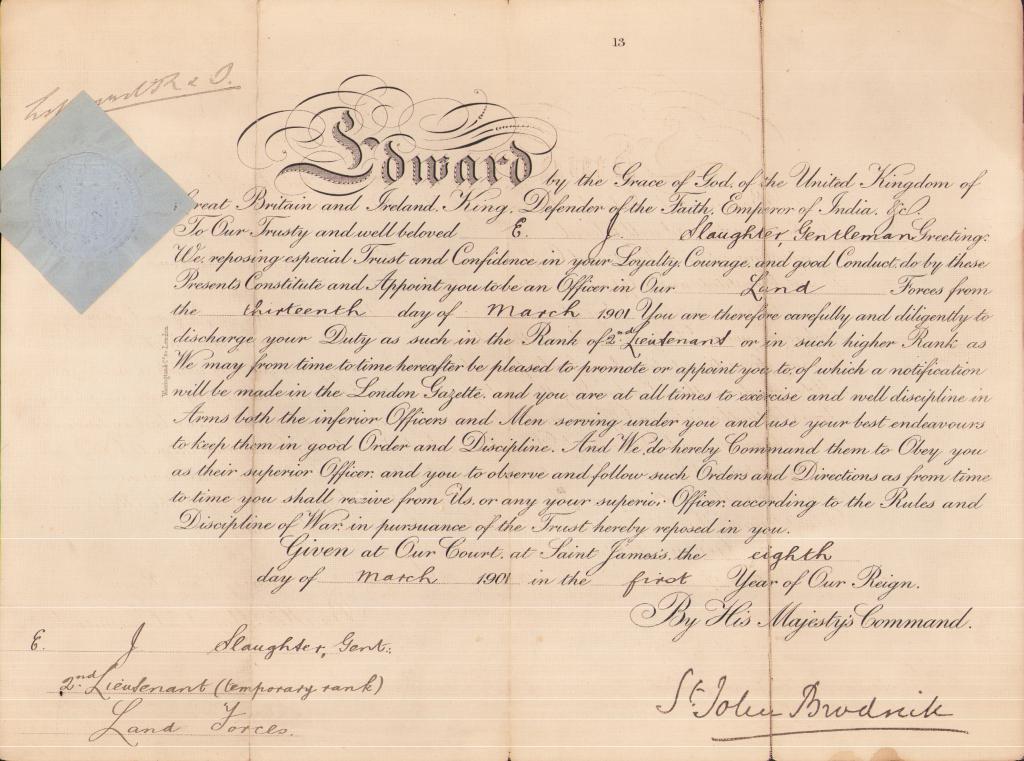 13
Edward R & I.
Edward by the Grace of God, of the United Kingdom of
Great Britain and Ireland, King, Defender of the Faith, Emperor of India, &c.
To Our Trusty and well beloved E. J. Slaughter, Gentleman Greeting:
We, reposing especial Trust and Confidence in your Loyalty, Courage, and good Conduct, do by these
Presents Constitute and Appoint you to be an Officer in Our Land Forces from
the thirteenth day of March 1901 You are therefore carefully and diligently to
discharge your Duty as such in the Rank of 2nd Lieutenant or in such higher Rank as
We may from time to time hereafter be pleased to promote or appoint you to, of which a notification
will be made in the London Gazette, and you are at all times to exercise and well discipline in
Arms both the inferior Officers and Men serving under you and use your best endeavours
to keep them in good Order and Discipline. And We do hereby Command them to Obey you
as their superior Officer, and you to observe and follow such Orders and Directions as from time
to time you shall receive from Us, or any your superior Officer, according to the Rules and
Discipline of War, in pursuance of the Trust hereby reposed in you.
Given at Our Court, at Saint James's, the eighth
day of March 1901 in the first Year of Our Reign.
By His Majesty's Command.
E. J. Slaughter, Gent:
2nd Lieutenant (temporary rank)
Land Forces.
St. John Brodrick